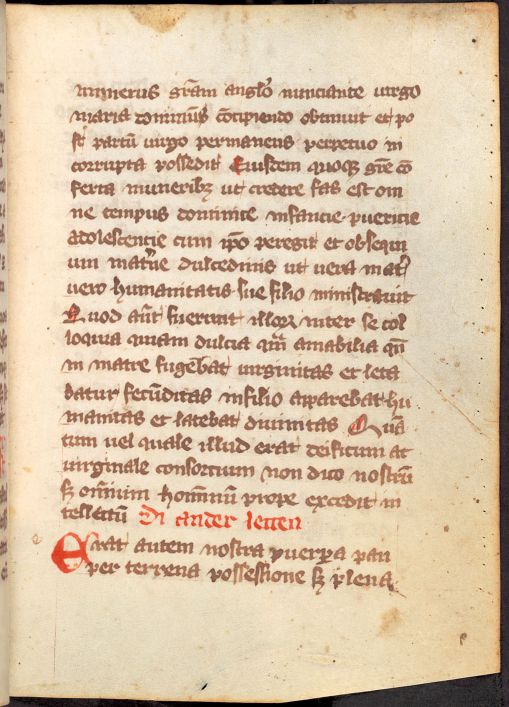 muneris gr̄am angl̓o nunciante uirgo
maria dominū ꝯcipiendo obtinuit et po
st̄ partū uirgo permanens perpetuo in
corrupta possedit Eiusdem quoqꝫ gr̄e cō
ferta muneribꝫ ut credere fas est om
ne tempus dominice infancie puericie
adolescencie cum ip̄o peregit et obsequi
um mat̓ne dulcedinis ut uera mat̓
uero humanitatis sue filio ministrauit
Quod aūt fuerunt illoꝝ inter se col
loquia quam dulcia qm̄ amabilia qn̄
in matre fugebat uirginitas et leta
batur fecūditas in filio aparebat hu
manitas et latebat diuinitas Quā
tum uel quale illud erat deificum ac
uirginale consortium non dico nostrū
sꝫ om̄ium hominū prope excedit in
tellectū Di ander leccen
Erat autem nostra puerꝑa pau
per terrena possessione sꝫ plena